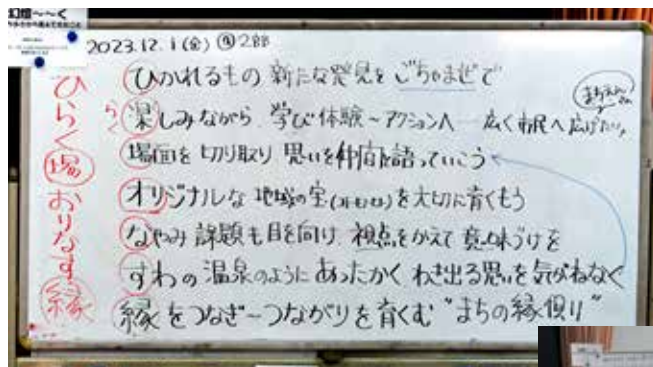 幻燈〜〜く
2023.12.1(金)
ひらく場おりなす縁
ひかれるもの 新たな発見を ごちゃまぜで
楽しみながら 学び 体験〜アクションへ 広く市民へ広げたい
らく
場面を切り取り 思いを仲間と語っていこう
オリジナルな 地域の宝を大切に育くもう
なやみ 課題も目を向け 視点をかえて 意味づけを
すわの温泉のように あったかく わき出る思いを気がねなく
縁をつなぎーつながりを育くむ "まちの縁側"